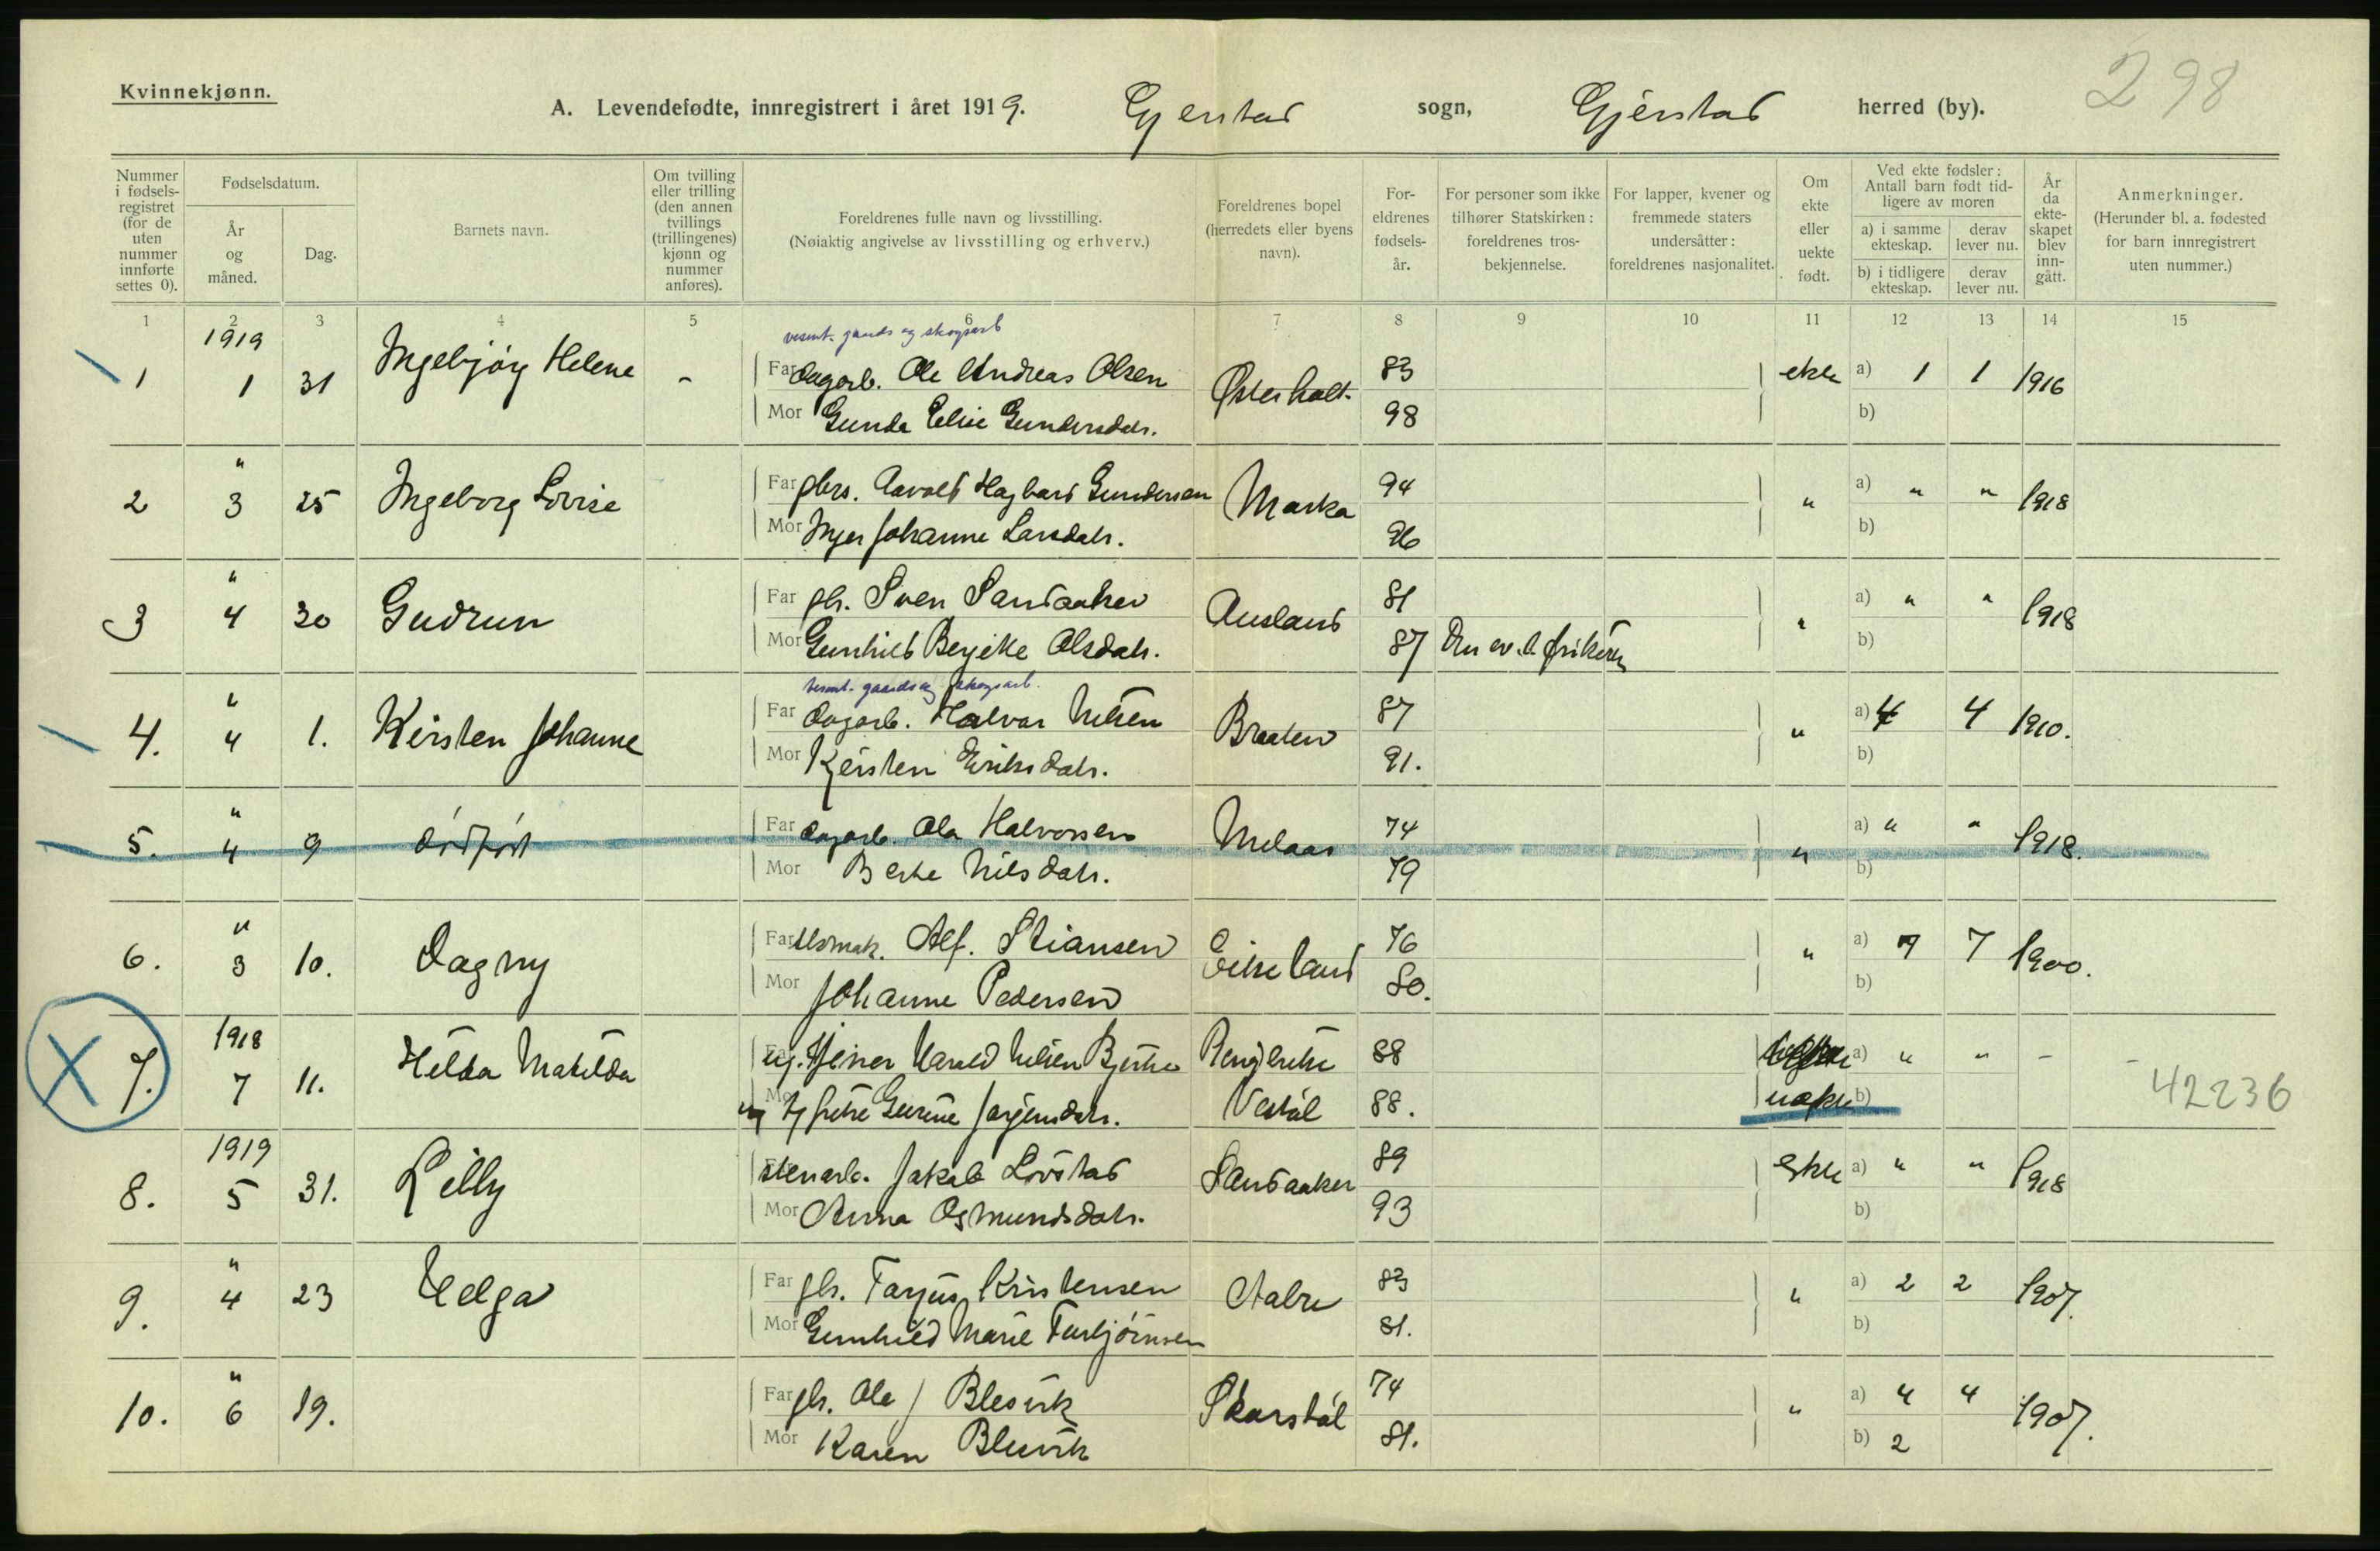 Kvinnekjønn.
298
A. Levendefødte, innregistrert i året 1919. Gjerstad sogn, Gjerstad herred (by).
Nummer i fødselsregistret (for de uten nummer innførte settes 0).
Fødselsdatum.
År og måned.
Dag.
Barnets navn.
Om tvilling eller trilling (den annen tvillings (trillingenes) kjønn og nummer anføres).
Foreldrenes fulle navn og livsstilling.
(Nøiaktig angivelse av livsstilling og erhverv.)
Foreldrenes bopel (herredets eller byens navn).
Foreldrenes fødselsår.
For personer som ikke tilhører Statskirken: foreldrenes trosbekjennelse.
For lapper, kvener og fremmede staters undersåtter: foreldrenes nasjonalitet.
Om ekte eller uekte født.
Ved ekte fødsler: Antall barn født tidligere av moren
a) i samme ekteskap. derav lever nu.
b) i tidligere ekteskap. derav lever nu.
År da ekteskapet blev inngått.
Anmerkninger.
(Herunder bl. a. fødested for barn innregistrert uten nummer.)
1 2 3 4 5 6 7 8 9 10 11 12 13 14 15
vesent. gaards og skogsarb
1919
1 1 31 Ingebjørg Helene - Far Dagarb. Ole Andreas Olsen Østerholt. 83 ekte a) 1 1 1916
Mor Gunda Elise Gundersdatr. 98 b)
2 " 3 25 Ingeborg Lovise Far gbrs. Aavolt Hagbart Gundersen Marka 94 " a) " " 1918
Mor Inger Johanne Larsdatr. 96 b)
3 " 4 30 Gudrun Far gbr. Sven Sandaaker Ausland 81 " a) " " 1918
Mor Gunhild Bergitte Olsdatr. 87 Den ev. l. frikirke b)
vesent. gaards og skogsarb.
4. " 4 1. Kirsten Johanne Far Dagarb. Halvor Nilsen Braaten 87 " a) 4 4 1910.
Mor Kjersten Eriksdatr. 91. b)
5. " 4 9 dødfødt Far dagarb. Ola Halvorsen Melaas 74 " a) " " 1918.
Mor Berte Nilsdatr. 79 b)
6. " 3 10. Dagny Far Alf. Stiansen Eikeland 76 " a) 7 7 1900.
Mor Johanne Pedersen 80. b)
1918
X 7. 7 11. Helda Matilda ug. Harald Nilsen 88 a) " " - -
Mo Gurine Jørgensdatr. Vestøl 88. uekte b) 42236
1919
8. 5 31. Lilly stenarb. Jakob Lovstad Sandaaker 89 Ekte a) " " 1918
Mor Anna Osmundsdatr. 93 b)
9. " 4 23 Helga Far gbr. Tarjus Kristensen Aabre 83 " a) 2 2 1907.
Mor Gunhild Marie Torbjørnsen 81. b)
10. " 6 19. Far gbr. Ole J Blesvik Skarstøl 74 " a) 4 4 1907.
Mor Karen Blesvik 81. b) 2